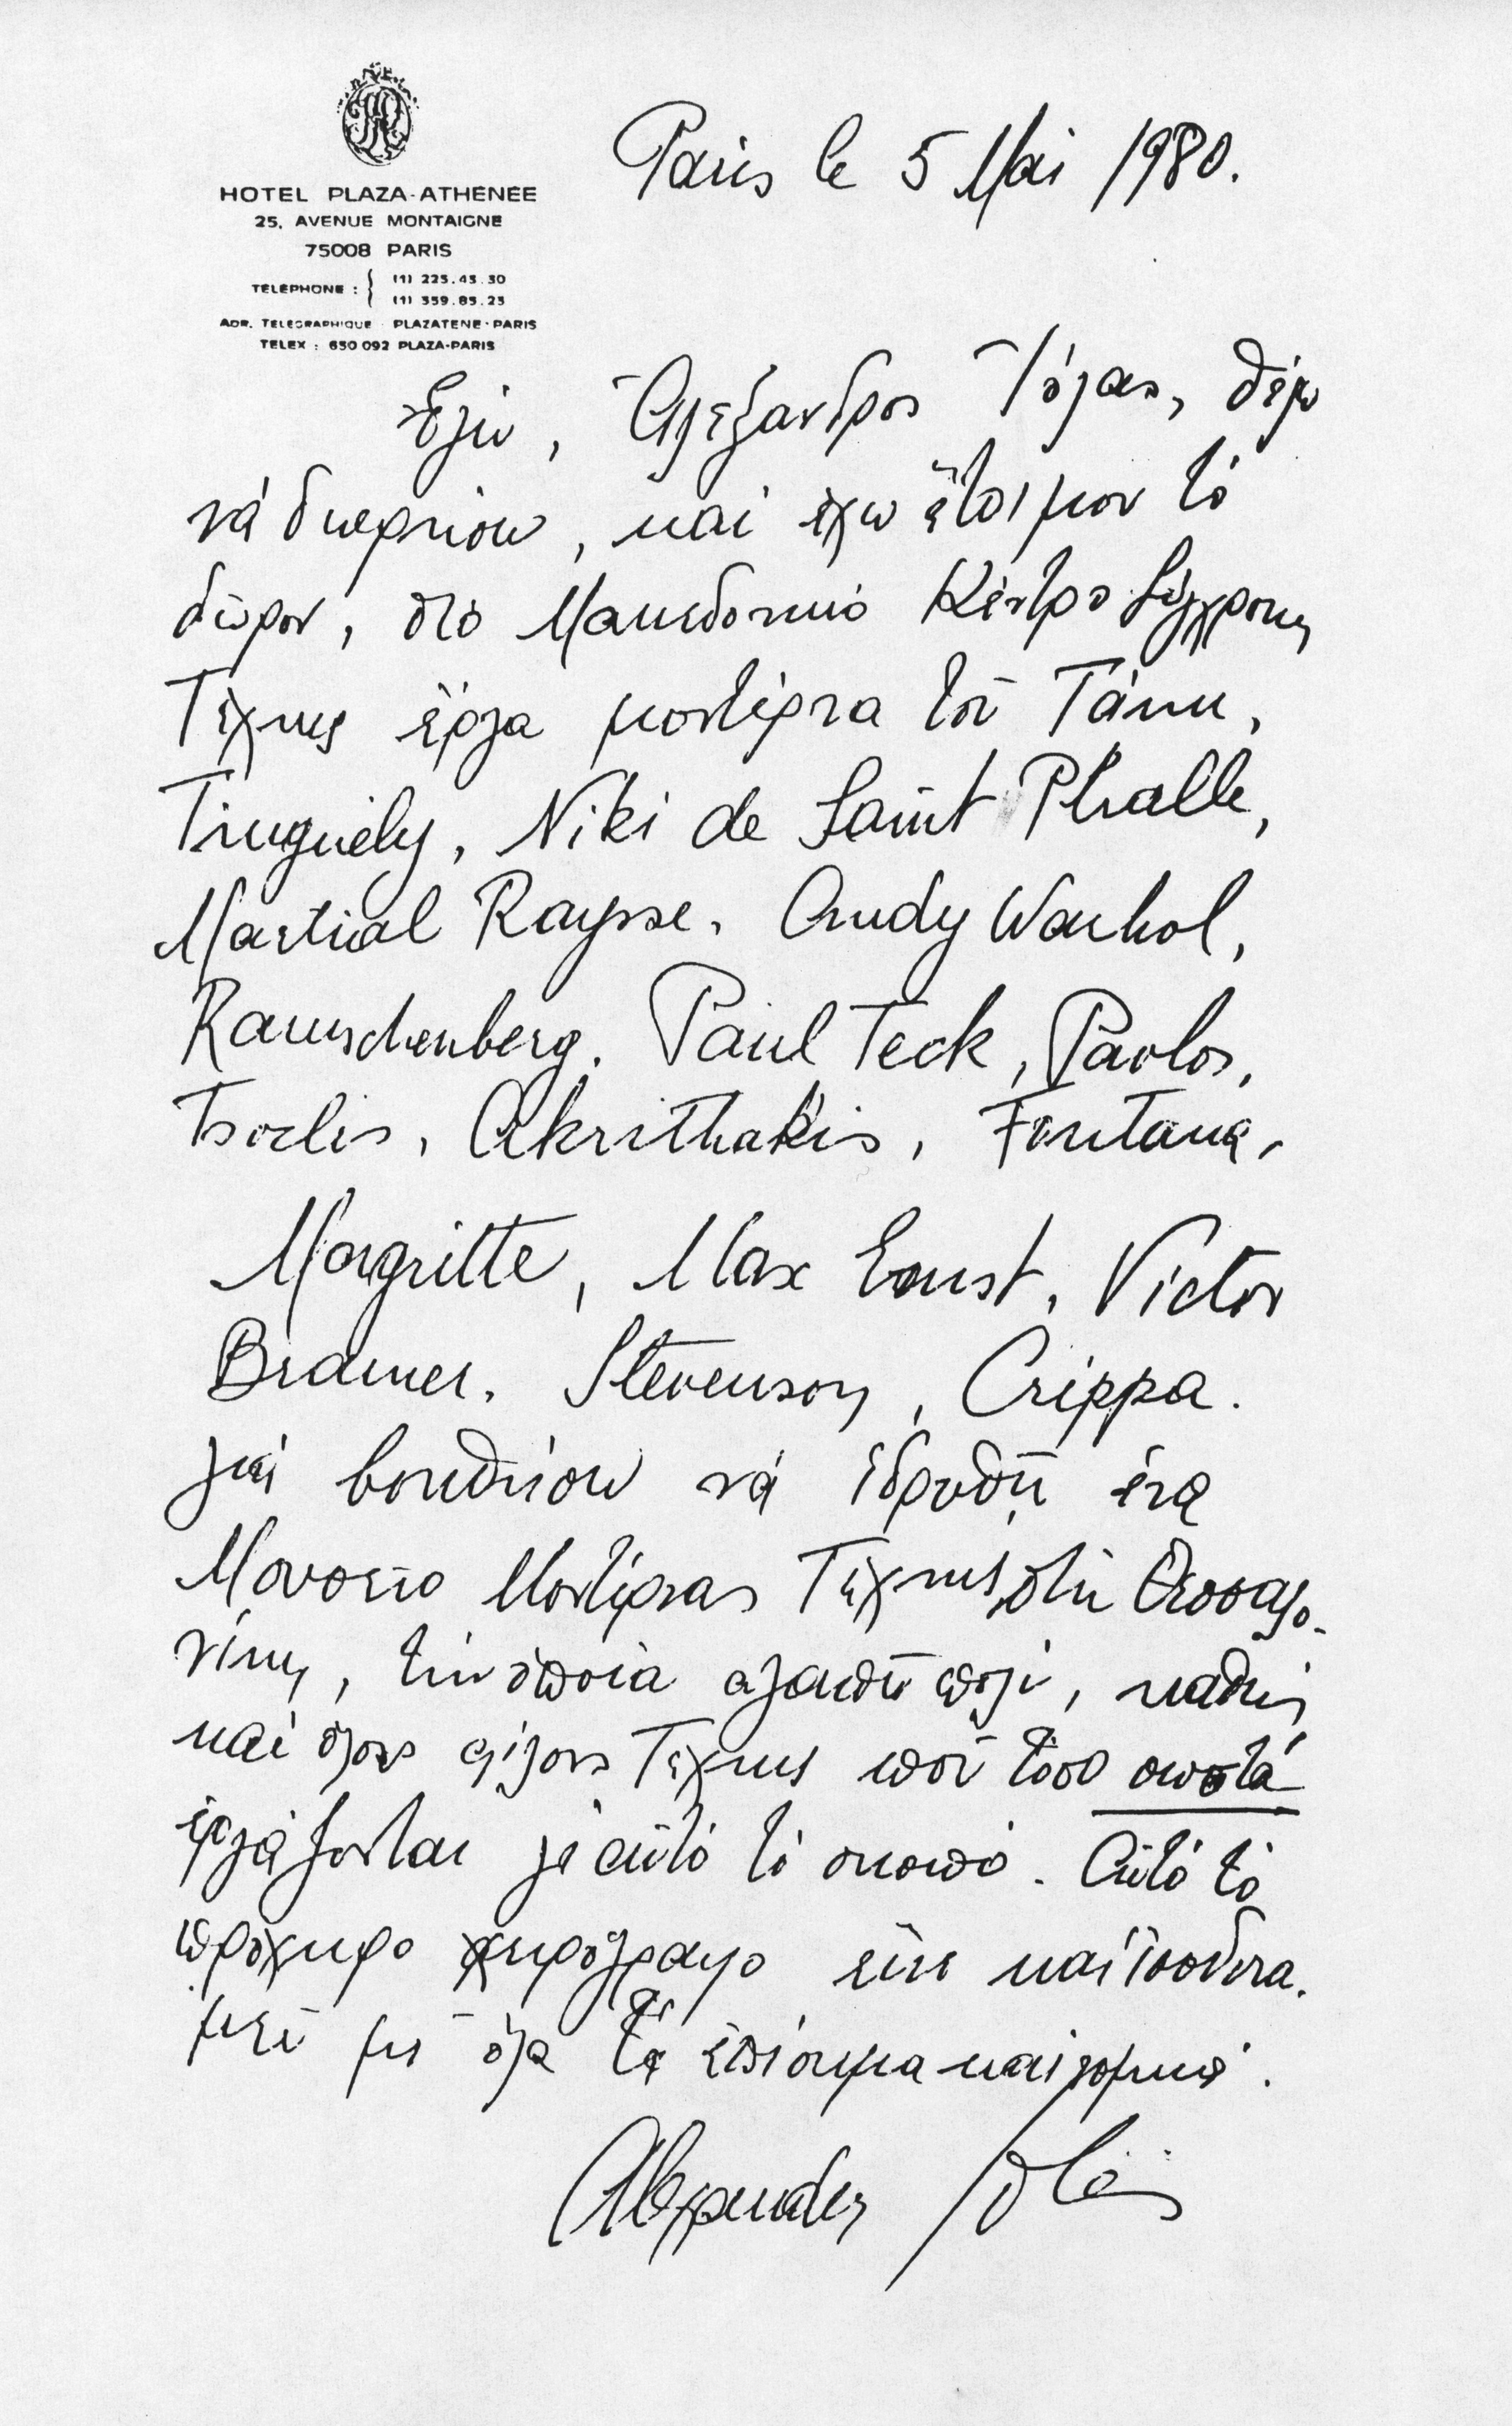 HOTEL PLAZA-ATHENEE
25, AVENUE MONTAIGNE
75008 PARIS
TELEPHONE : (1) 225.43.30
(1) 359.85.23
ADR. TELEGRAPHIQUE PLAZATENE-PARIS
TELEX : 650 092 PLAZA-PARIS
Paris le 5 Mai 1980.
Ἐγώ, Ἀλέξανδρος Ἰόλας, θέλω
νά δωρήσω, καί ἔχω ἕτοιμον τό
δῶρον, στό Μακεδονικό Κέντρο Σύγχρονης
Τέχνης ἔργα μοντέρνα τοῦ Τάκη,
Tinguely, Niki de Saint Phalle,
Martial Raysse, Andy Warhol,
Rauschenberg, Paul Teck, Pavlos,
Tsoclis, Akrithakis, Fontana,
Magritte, Max Ernst, Victor
Brauner, Stevenson, Crippa.
γιά βοηθήσω νά ἱδρυθῆ ἕνα
Μουσεῖο Μοντέρνας Τέχνης, στή Θεσσαλο-
νίκη, τήν ὁποία ἀγαπῶ πολύ, καθώς
καί ὅλους φίλους Τέχνης πού τόσο σωστά
ἐργάζονται γι' αὐτό τό σκοπό. Αὐτό τό
πρόχειρο χειρόγραφο εἶνε καί ἰσοδυνα-
μεῖ μέ ὅλα τά ἐπίσημα καί νομικά.
Alexander Iolas